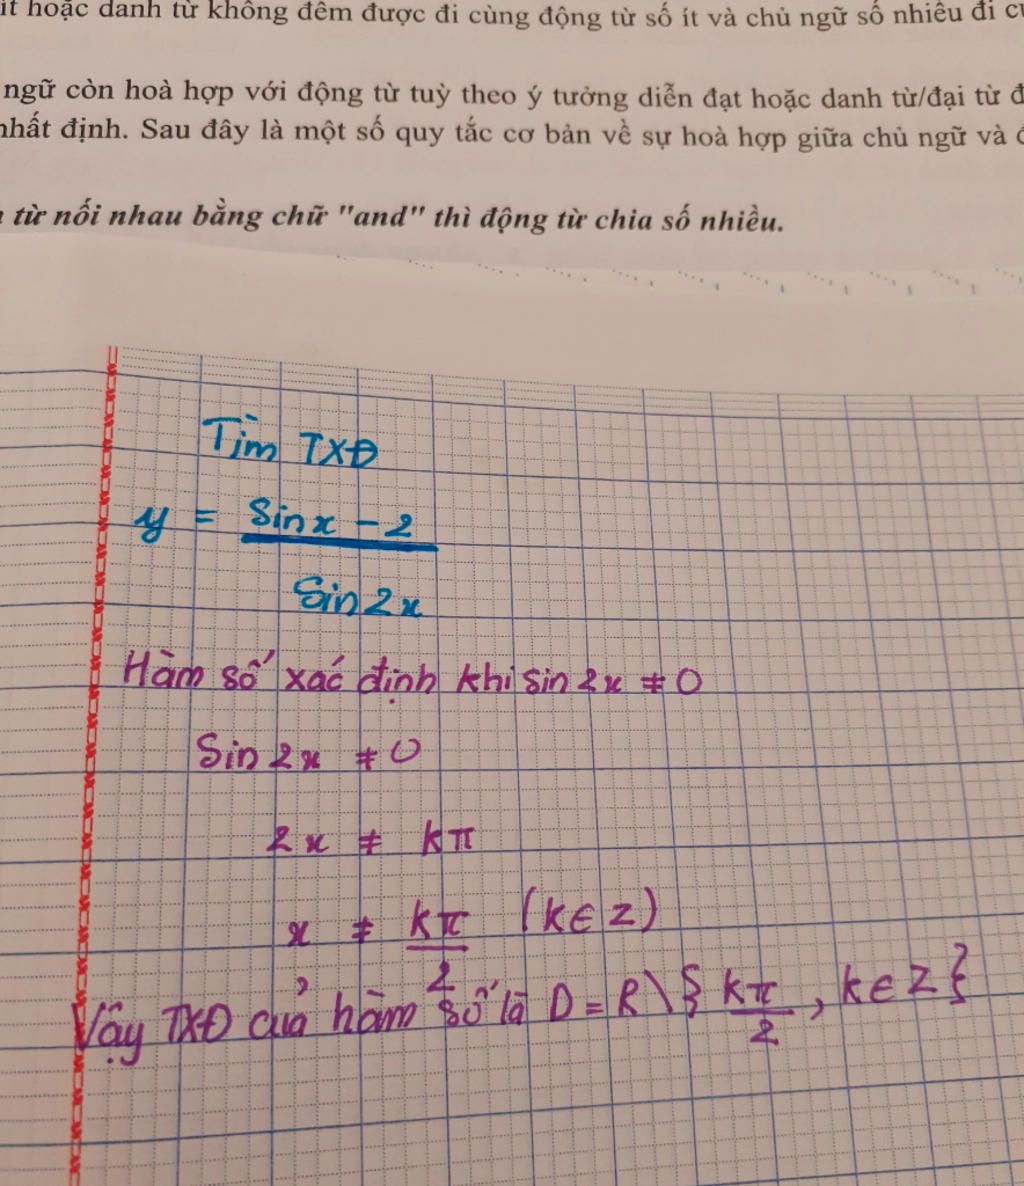 ít hoặc danh từ không đếm được đi cùng động từ số ít và chủ ngữ số nhiều đi
ngữ còn hoà hợp với động từ tuỳ theo ý tưởng diễn đạt hoặc danh từ/đại từ
nhất định. Sau đây là một số quy tắc cơ bản về sự hoà hợp giữa chủ ngữ và
từ nối nhau bằng chữ "and" thì động từ chia số nhiều.
Tìm TXĐ
y = Sinx - 2
Sin2x
Hàm số xác định khi sin 2x ≠ 0
Sin 2x ≠ 0
2x ≠ kπ
x ≠ kπ/2 (k∈Z)
Vậy TXĐ của hàm số là D = R \ { kπ/2 , k∈Z }